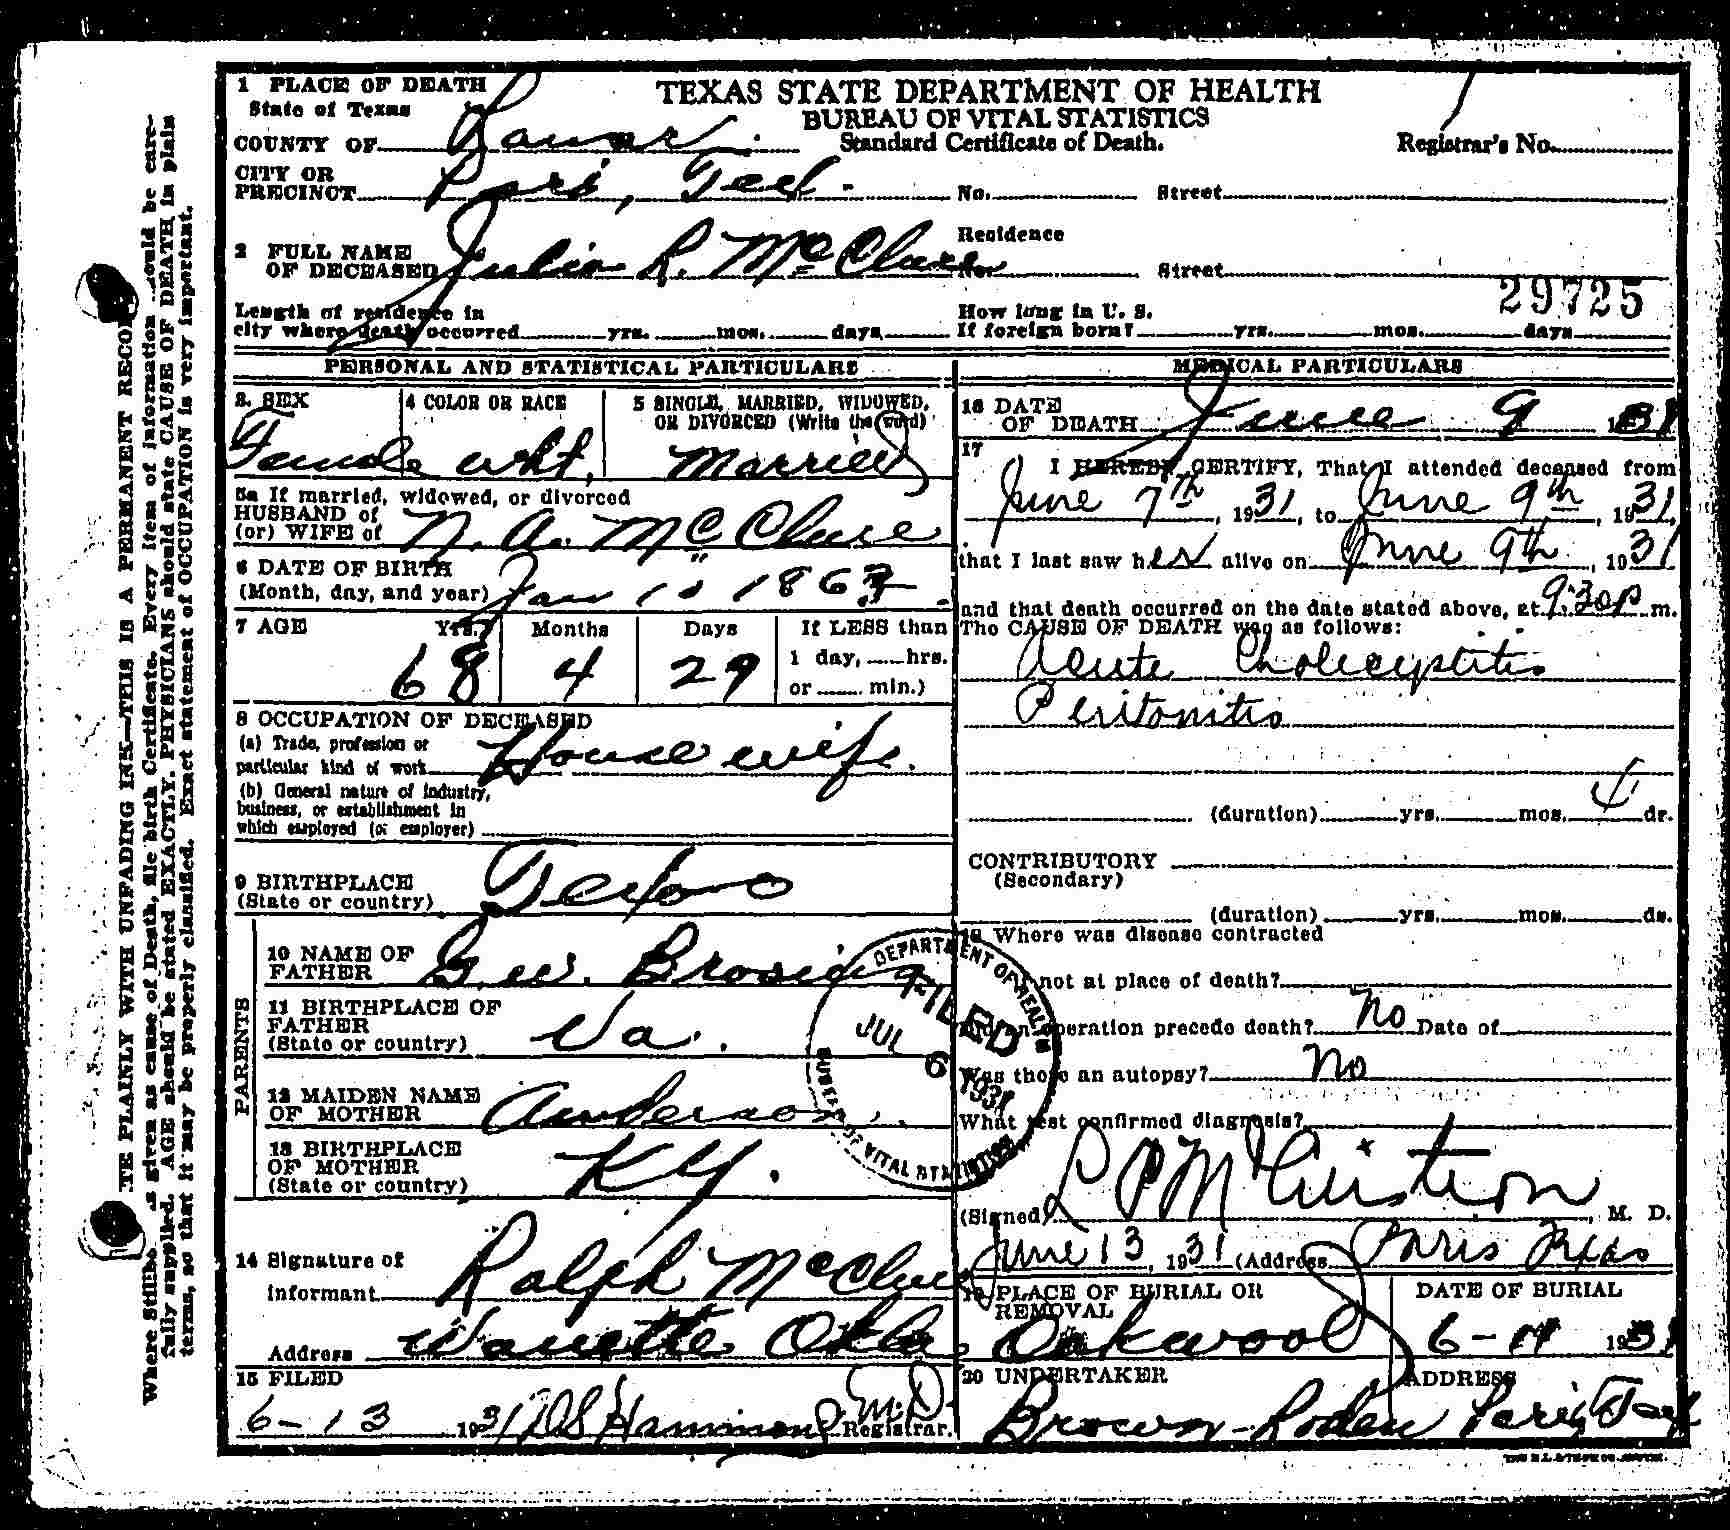 WRITE PLAINLY WITH UNFADING INK—THIS IS A PERMANENT RECORD
Every item of information should be care-
fully supplied. AGE should be stated EXACTLY. PHYSICIANS should state CAUSE OF DEATH in plain
terms, so that it may be properly classified. Exact statement of OCCUPATION is very important.
as given as cause of Death, file birth Certificate.
1 PLACE OF DEATH
State of Texas
COUNTY OF Lamar
CITY OR
PRECINCT Paris, Tex.
TEXAS STATE DEPARTMENT OF HEALTH
BUREAU OF VITAL STATISTICS
Standard Certificate of Death.
Registrar's No.
No. Street
2 FULL NAME
OF DECEASED Julia R. McClure
Residence
No. Street
29725
Length of residence in
city where death occurred yrs. mos. days
How long in U. S.
If foreign born? yrs. mos. days
PERSONAL AND STATISTICAL PARTICULARS
3. SEX
Female
4 COLOR OR RACE
wht,
5 SINGLE, MARRIED, WIDOWED,
OR DIVORCED (Write the word)
Married
5a If married, widowed, or divorced
HUSBAND of
(or) WIFE of N. A. McClure
6 DATE OF BIRTH
(Month, day, and year) Jan 10 1863
7 AGE Yrs. Months Days If LESS than
68 4 29 1 day, hrs.
or min.)
8 OCCUPATION OF DECEASED
(a) Trade, profession or
particular kind of work Housewife.
(b) General nature of industry,
business, or establishment in
which employed (or employer)
9 BIRTHPLACE
(State or country) Texas
PARENTS
10 NAME OF
FATHER G.W.
11 BIRTHPLACE OF
FATHER
(State or country) Va.
12 MAIDEN NAME
OF MOTHER Anderson.
13 BIRTHPLACE
OF MOTHER
(State or country) Ky.
14 Signature of
Informant Ralph McClure
Address Wanette Okla
15 FILED
6-13 1931 Hammond M.D. Registrar.
DEPARTMENT OF HEALTH
FILED
JUL 6 1931
BUREAU OF VITAL STATISTICS
MEDICAL PARTICULARS
16 DATE
OF DEATH June 9 1931
17
I HEREBY CERTIFY, That I attended deceased from
June 7th, 1931, to June 9th, 1931,
that I last saw her alive on June 9th, 1931
and that death occurred on the date stated above, at 9:30 p m.
The CAUSE OF DEATH was as follows:
Acute Cholecystitis
Peritonitis
(duration) yrs. mos. 4 ds.
CONTRIBUTORY
(Secondary)
(duration) yrs. mos. ds.
18 Where was disease contracted
if not at place of death?
Did an operation precede death? No Date of
Was there an autopsy? No
What test confirmed diagnosis?
(Signed) L P McCuistion, M. D.
June 13, 1931 (Address Paris Texas
19 PLACE OF BURIAL OR
REMOVAL
Oakwood
DATE OF BURIAL
6-11 1931
20 UNDERTAKER
Brown-Roden
ADDRESS
Paris Tex